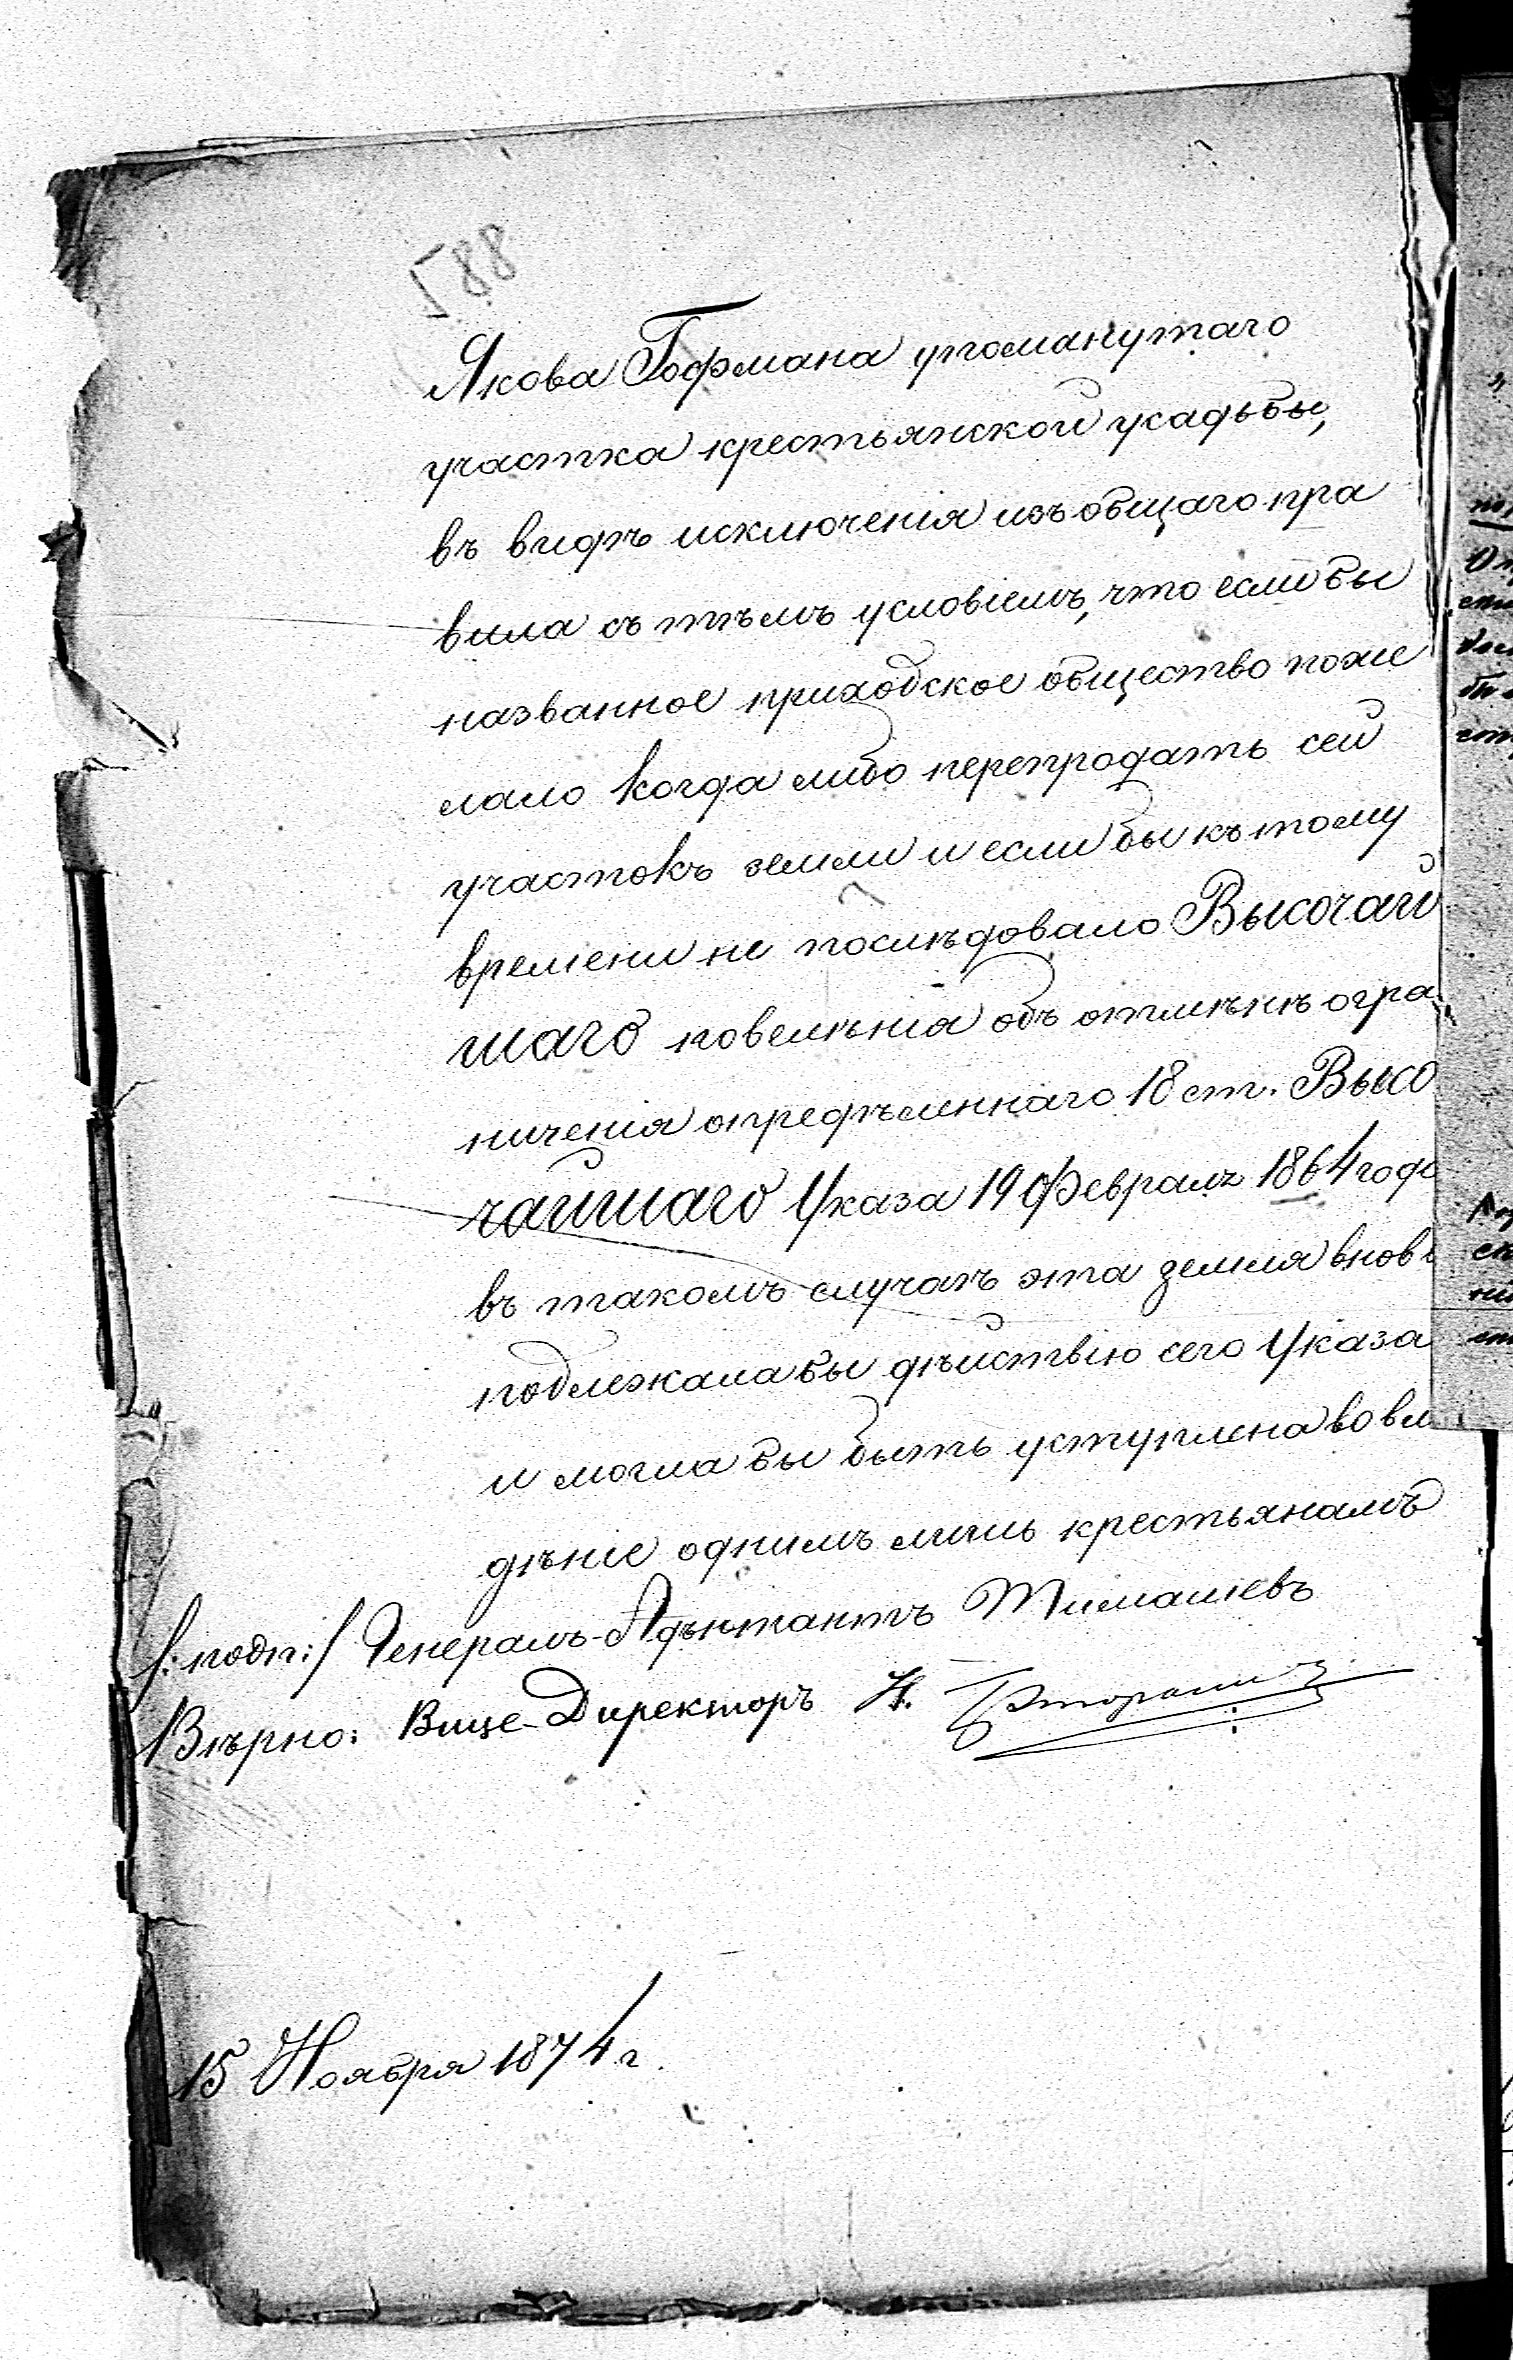 Якова Гофмана упоманутаго
участка крестьянской усадьбы,
въ видѣ исключенія изъ общаго пра
вила съ тѣмъ условіемъ, что если бы
названное приходское общество поже
лало когда либо перепродать сей
участокъ земли и если бы къ тому
времени не послѣдовало Высочай
шаго повелѣнія объ отмѣнѣ огра
ниченія опредѣленнаго 18 ст. Высо
чайшаго Указа 19 Февраля 1864 года
въ такомъ случаѣ эта земля вновь
подлежала бы дѣйствію сего Указа
и могла бы быть уступлена во вла
дѣніе однимъ лишь крестьянамъ
/:подп:/ Генералъ-Адъютантъ Тимашевъ
Вѣрно: Вице-Директоръ Н.
15 Ноября 1874 г.